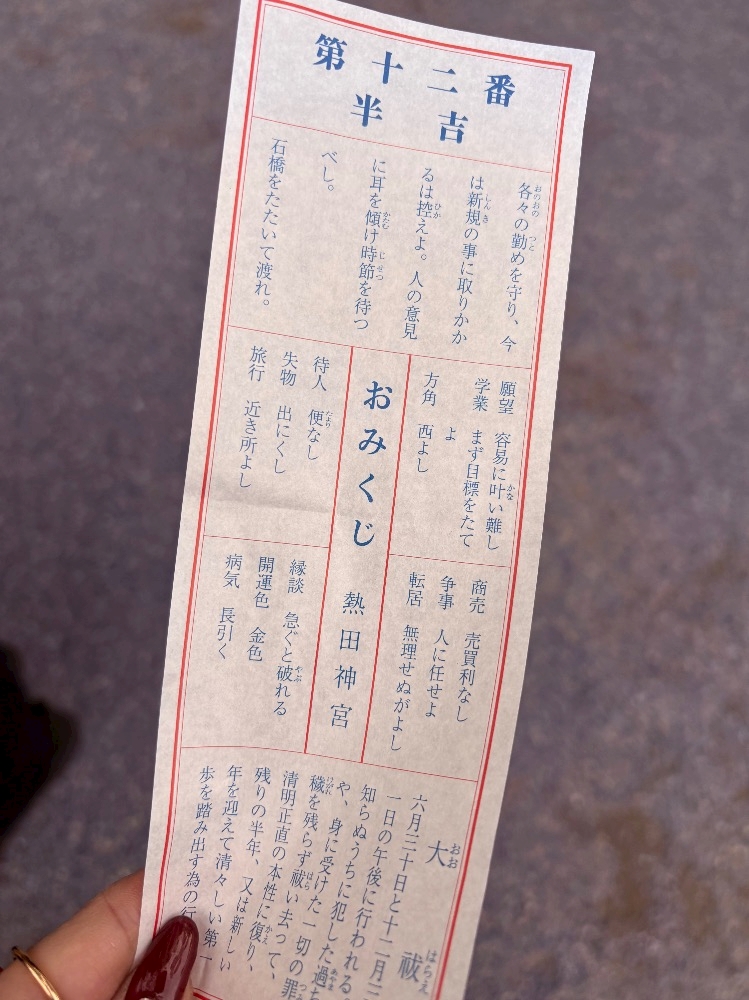 第十二番
半吉
各々の勤めを守り、今
は新規の事に取りかか
るは控えよ。人の意見
に耳を傾け時節を待つ
べし。
石橋をたたいて渡れ。
願望 容易に叶い難し
学業 まず目標をたて
よ
方角 西よし
商売 売買利なし
争事 人に任せよ
転居 無理せぬがよし
おみくじ 熱田神宮
待人 便なし
失物 出にくし
旅行 近き所よし
縁談 急ぐと破れる
開運色 金色
病気 長引く
大祓
六月三十日と十二月三
一日の午後に行われる
知らぬうちに犯した過ち
や、身に受けた一切の罪
穢を残らず祓い去って、
清明正直の本性に復り、
残りの半年、又は新しい
年を迎えて清々しい第一
歩を踏み出す為の行